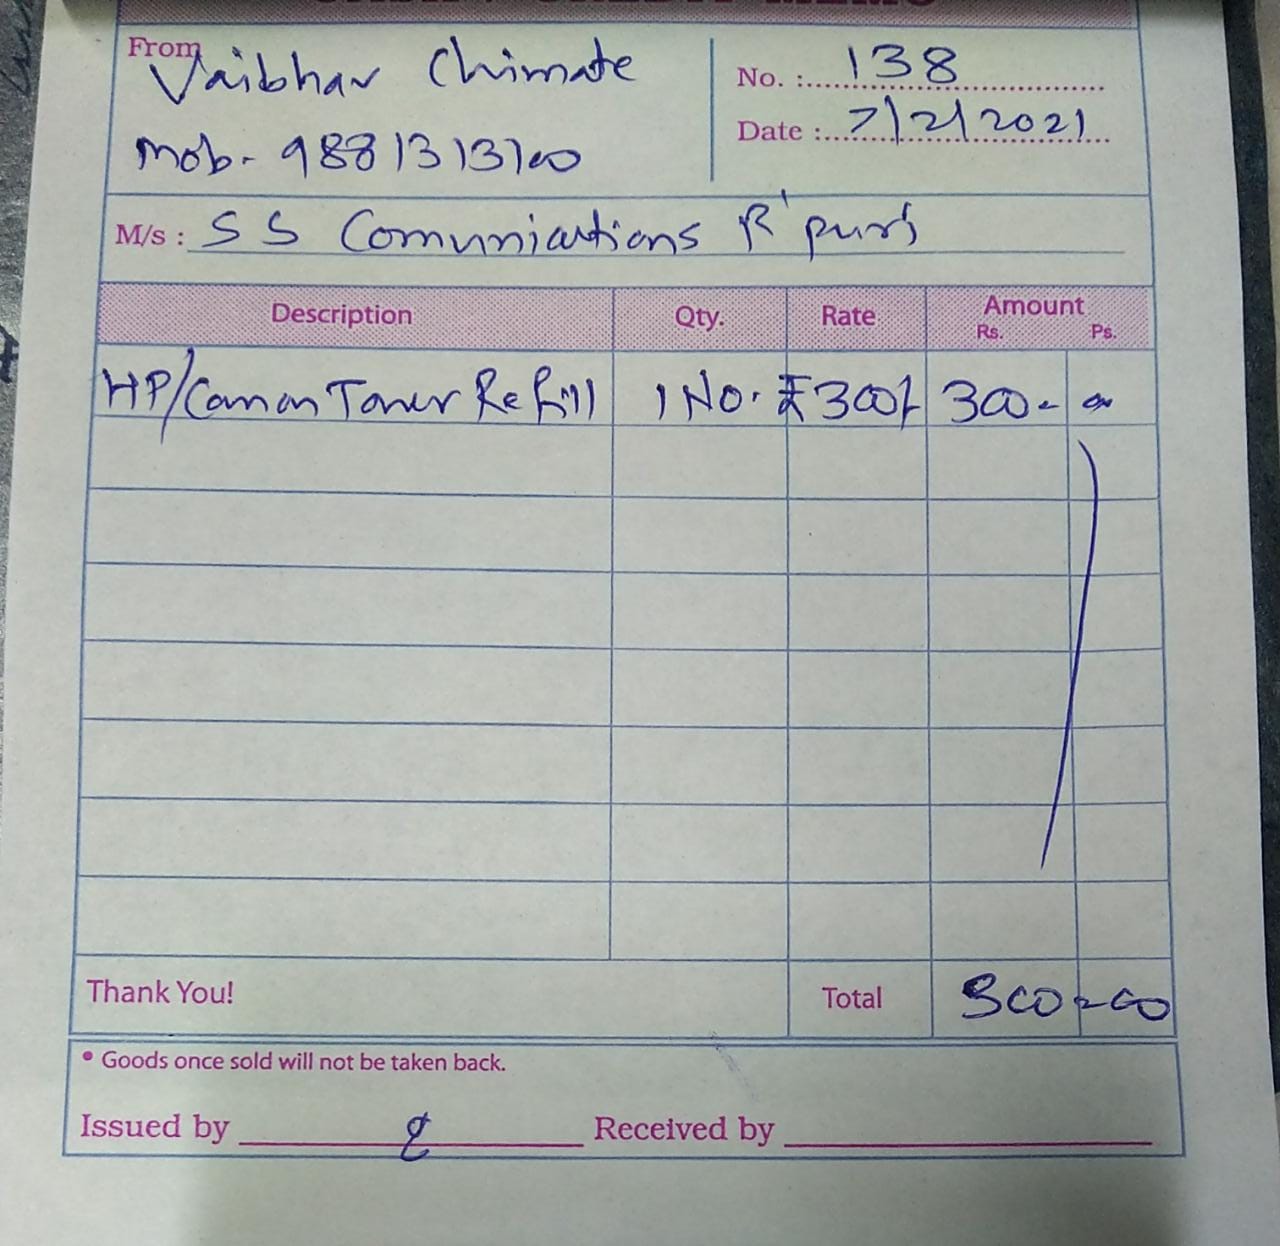 CASH / CREDIT MEMO
From Vaibhav Chimate
Mob- 9881313700
No. : 138
Date : 7/2/2021
M/s : SS Comunications R'puri
Description Qty. Rate Amount
Rs. Ps.
HP/Canon Toner Refill 1 No. ₹300/- 300- 00
Thank You! Total 300=00
• Goods once sold will not be taken back.
Issued by Received by